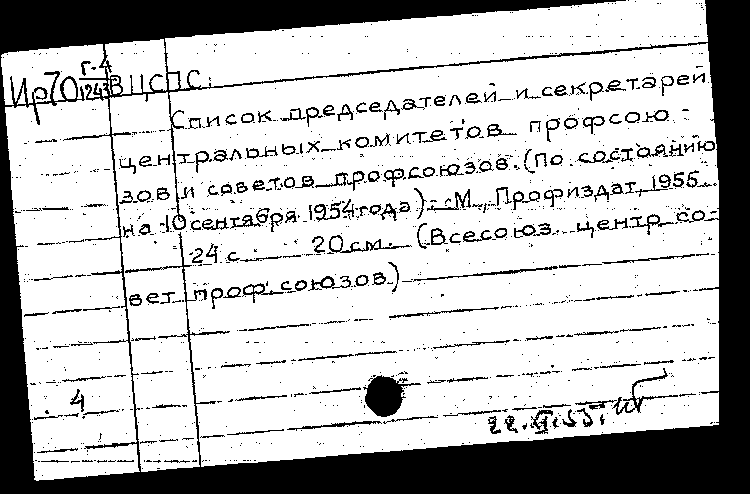 Ир70 г-4/1243 ВЦСПС.
Список председателей и секретарей
центральных комитетов профсою-
зов и советов профсоюзов. (По состоянию
на 10 сентября 1954 года). - М., Профиздат, 1955.
24 с. 20 см. (Всесоюз. центр. со-
вет проф. союзов)
4
22.VI.55.